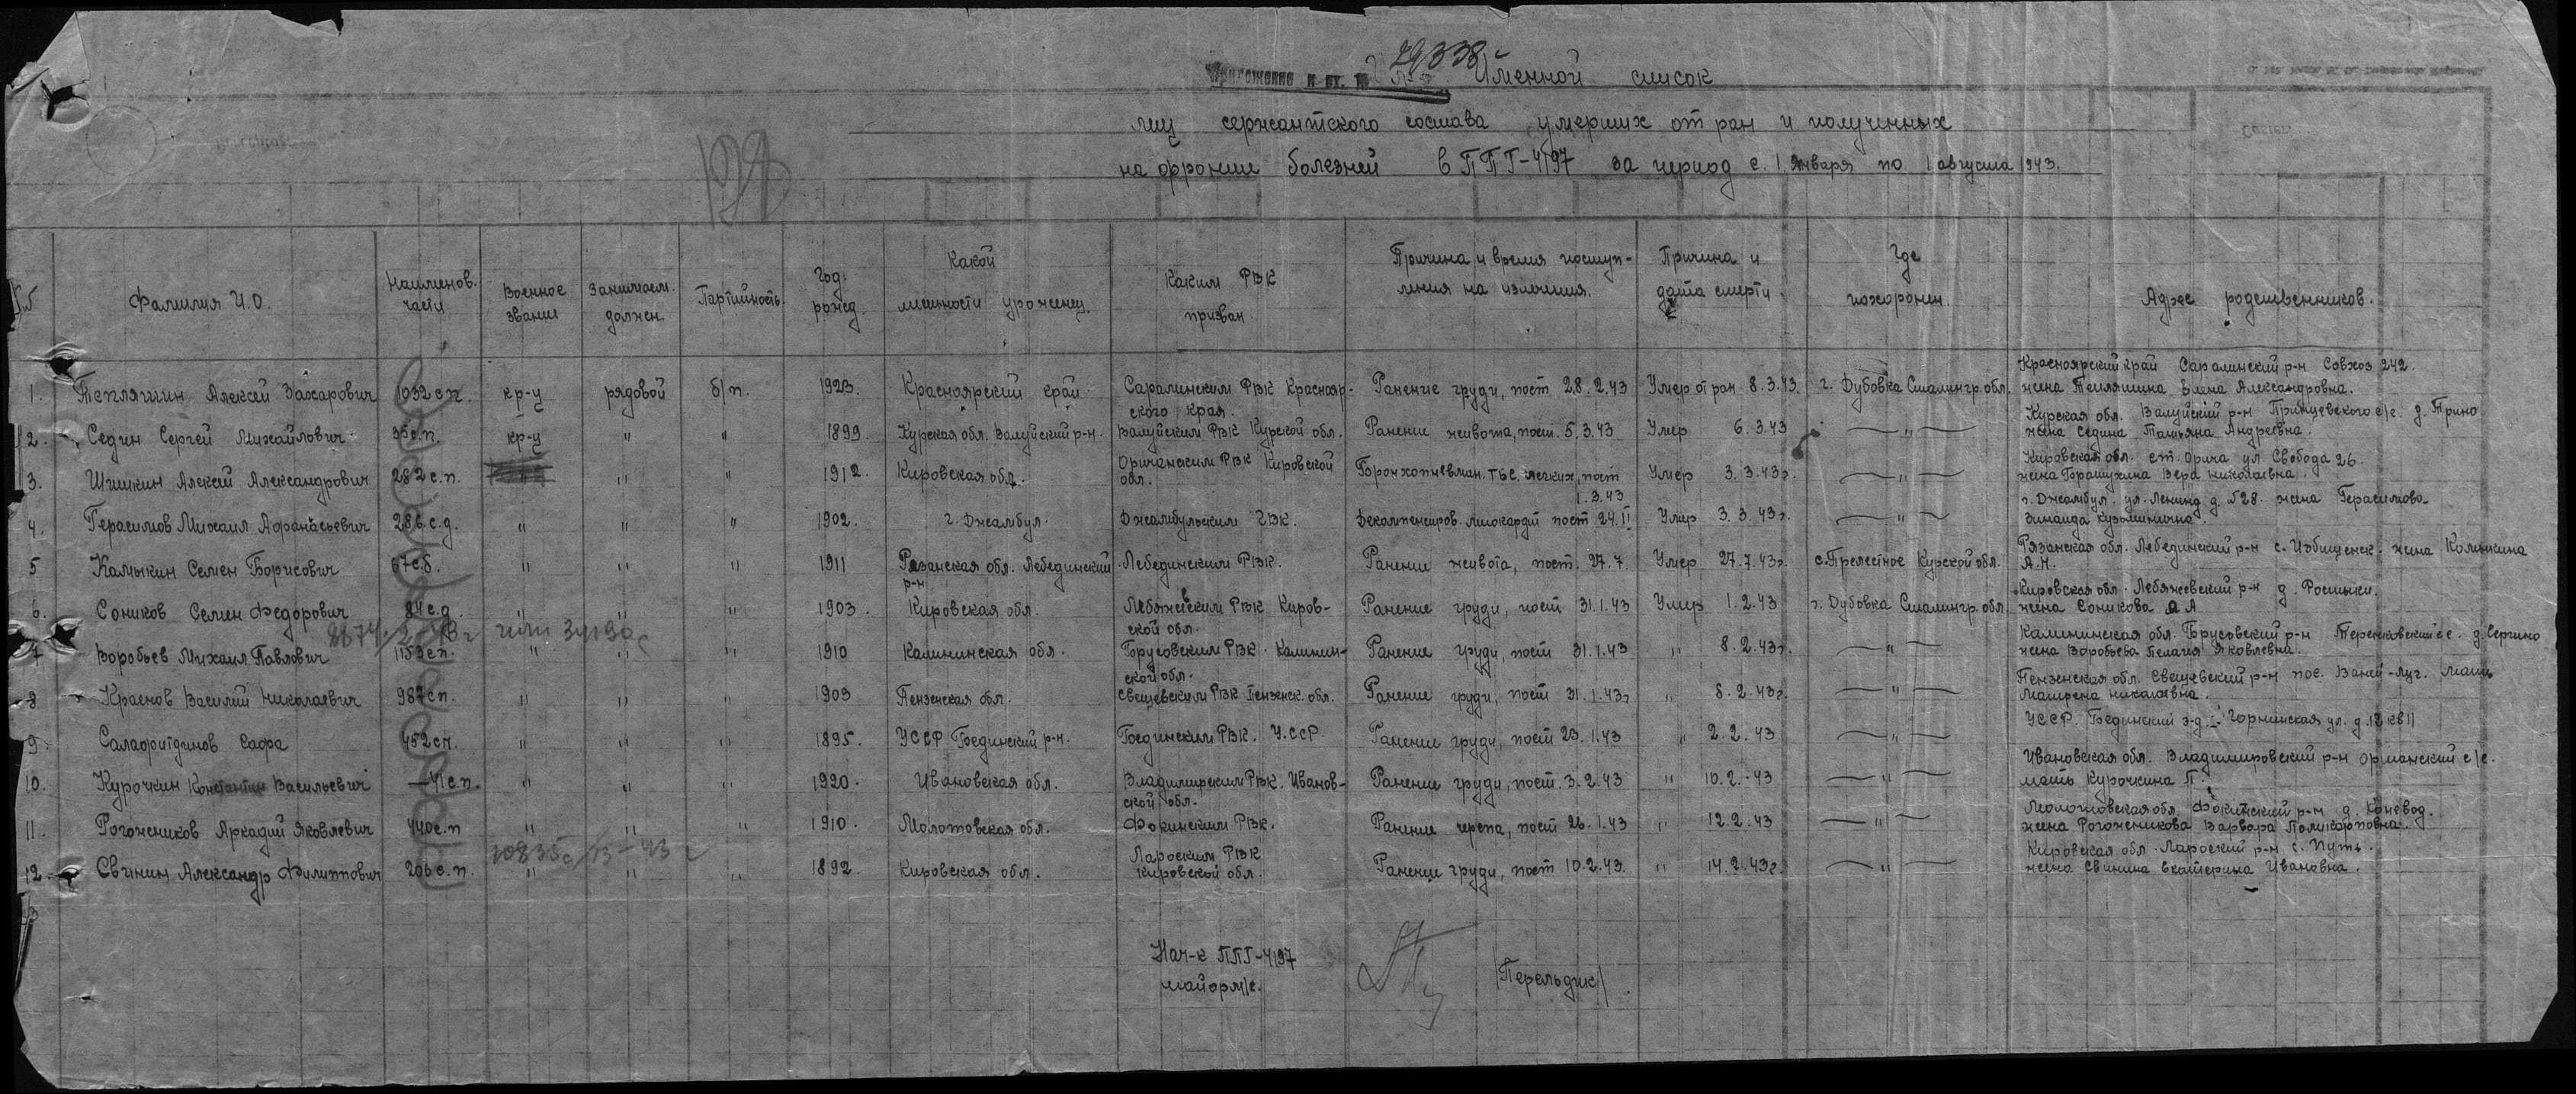 Приложение к вх. № 29338
Именной список
лиц сержантского состава умерших от ран и полученных
на фронте болезней в ППГ-4197 за период с 1 Января по 1 августа 1943.
№ Фамилия И.О. Наименов. части Военное звание Занимаем. должен. Партийность. Год. рожд. Какой местности уроженец. Каким РВК призван. Причина и время поступ-ления на излечения. Причина и дата смерти. Где похоронен. Адрес родственников.
1. Тепляшин Алексей Захарович 1032 с.п. кр-ц рядовой б/п. 1923. Красноярский край Саралинским РВК Краснояр-ского края. Ранение груди, пост 28.2.43 Умер от ран 8.3.43. г. Дубовка Сталингр. обл. Красноярский край Саралинский р-н Совхоз 242. жена Тепляшина Елена Александровна.
2. Седин Сергей Михайлович 35 с.п. кр-ц " " 1899. Курская обл. Валуйский р-н. Валуйским РВК Курской обл. Ранение живота, пост. 5.3.43 Умер 6.3.43 — " — Курская обл. Валуйский р-н Принцевского с/с. д. жена Седина Татьяна Андреевна.
3. Шишкин Алексей Александрович 282 с.п. " " 1912. Кировская обл. Оричанским РВК Кировской обл. ТБС легких, пост 1.3.43 Умер 3.3.43г. — " — Кировская обл. ст. Орича ул. Свобода 26. жена Вера Николаевна.
4. Герасимов Михаил Афанасьевич 286 с.д. " " " 1902. г. Джамбул. Джамбульским ГВК. Декомпенсиров. миокардит пост 24.II Умер 3.3.43г. — " — г. Джамбул. ул. Ленина д. №28. жена Герасимова Зинаида Кузьминична.
5 Камыкин Семен Борисович 67 с.б. " " " 1911 Рязанская обл. Лебединский р-н Лебединским РВК. Ранение живота, пост. 27.7. Умер 27.7.43г. с. Прелестное Курской обл. Рязанская обл. Лебединский р-н с. Избищенск. жена Камыкина А.Н.
6. Соников Семен Федорович 84 с.д. " " " 1903. Кировская обл. Лебяжевским РВК Киров-ской обл. Ранение груди, пост 31.1.43 Умер 1.2.43 г. Дубовка Сталингр. обл. Кировская обл. Лебяжевский р-н д. Росинки. жена Соникова А
7 Воробьев Михаил Павлович 1153 с.п. " " " 1910 Калининская обл. РВК. Калинин-ской обл. Ранение груди, пост 31.1.43 " 8.2.43г. — " — Калининская обл. Брусовский р-н с.с. д. Сергино жена Воробьева Пелагия Яковлевна.
8 Краснов Василий Николаевич 987 с.п. " " " 1903 Пензенская обл. Свещевским РВК Пензенск. обл. Ранение груди, пост 31.1.43г " 8.2.43г. — " — Пензенская обл. Свещевский р-н пос. мать Матрена Николаевна.
9 Салафитдинов Сафа 452 с.п. " " " 1895. УССР р-н. РВК. У.ССР. Ранение груди, пост 23.1.43 " 2.2.43 — " — УССР. ул. д.12 кв11
10. Курочкин Константин Васильевич —41 с.п. " " " 1920. Ивановская обл. Владимирским РВК. Иванов-ской обл. Ранение груди, пост. 3.2.43 " 10.2.-43 — " — Ивановская обл. Владимировский р-н с/с. мать Курочкина П.
11. Рогожников Аркадий Яковлевич 440 с.п " " " 1910. Молотовская обл. Фокинским РВК. Ранение черепа, пост 26.1.43 " 12.2.43 — " — Молотовская обл. Фокинский р-н д. Коневод. жена Рогожникова Варвара Поликарповна.
12. Свинин Александр Филиппович 206 с.п. " " " 1892. Кировская обл. Лароским РВК Кировской обл. Ранение груди, пост 10.2.43. " 14.2.43г. — " — Кировская обл. Лароский р-н с. Путь. жена Свинина Екатерина Ивановна.
Нач-к ППГ-4197
майор м/с. /Перельдик/